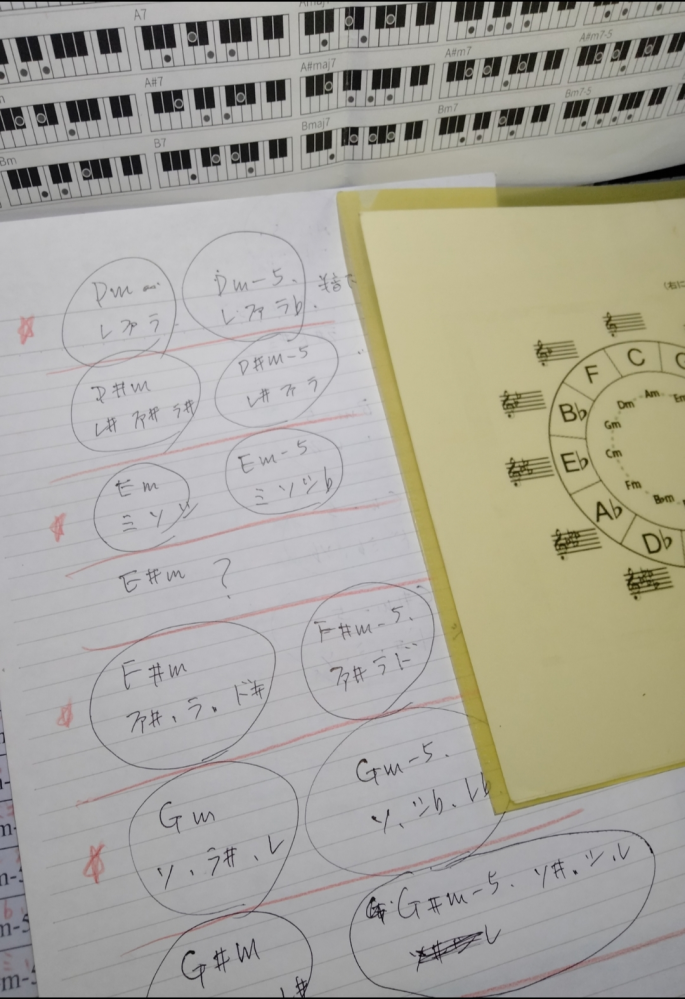 A7
A#7
A#maj7
A#m7
A#m7-5
Bm
B7
Bmaj7
Bm7
Bm7-5
Dm
レ ファ ラ
Dm-5.
レ ファ ラb.
D#m
レ# ファ# ラ#
D#m-5
レ# ファ ラ
Em
ミ ソ シ
Em-5
ミ ソ シb
E#m ?
F#m
ファ#、ラ。ド#
F#m-5.
ファ# ラ ド
Gm
ソ、ラ#、レ
Gm-5.
ソ、シb、レb
G#m
レ#
G#m-5. ソ#。シ、レ
レ
F
C
B♭
E♭
A♭
D♭
Am
Dm
Gm
Cm
Fm
B♭m